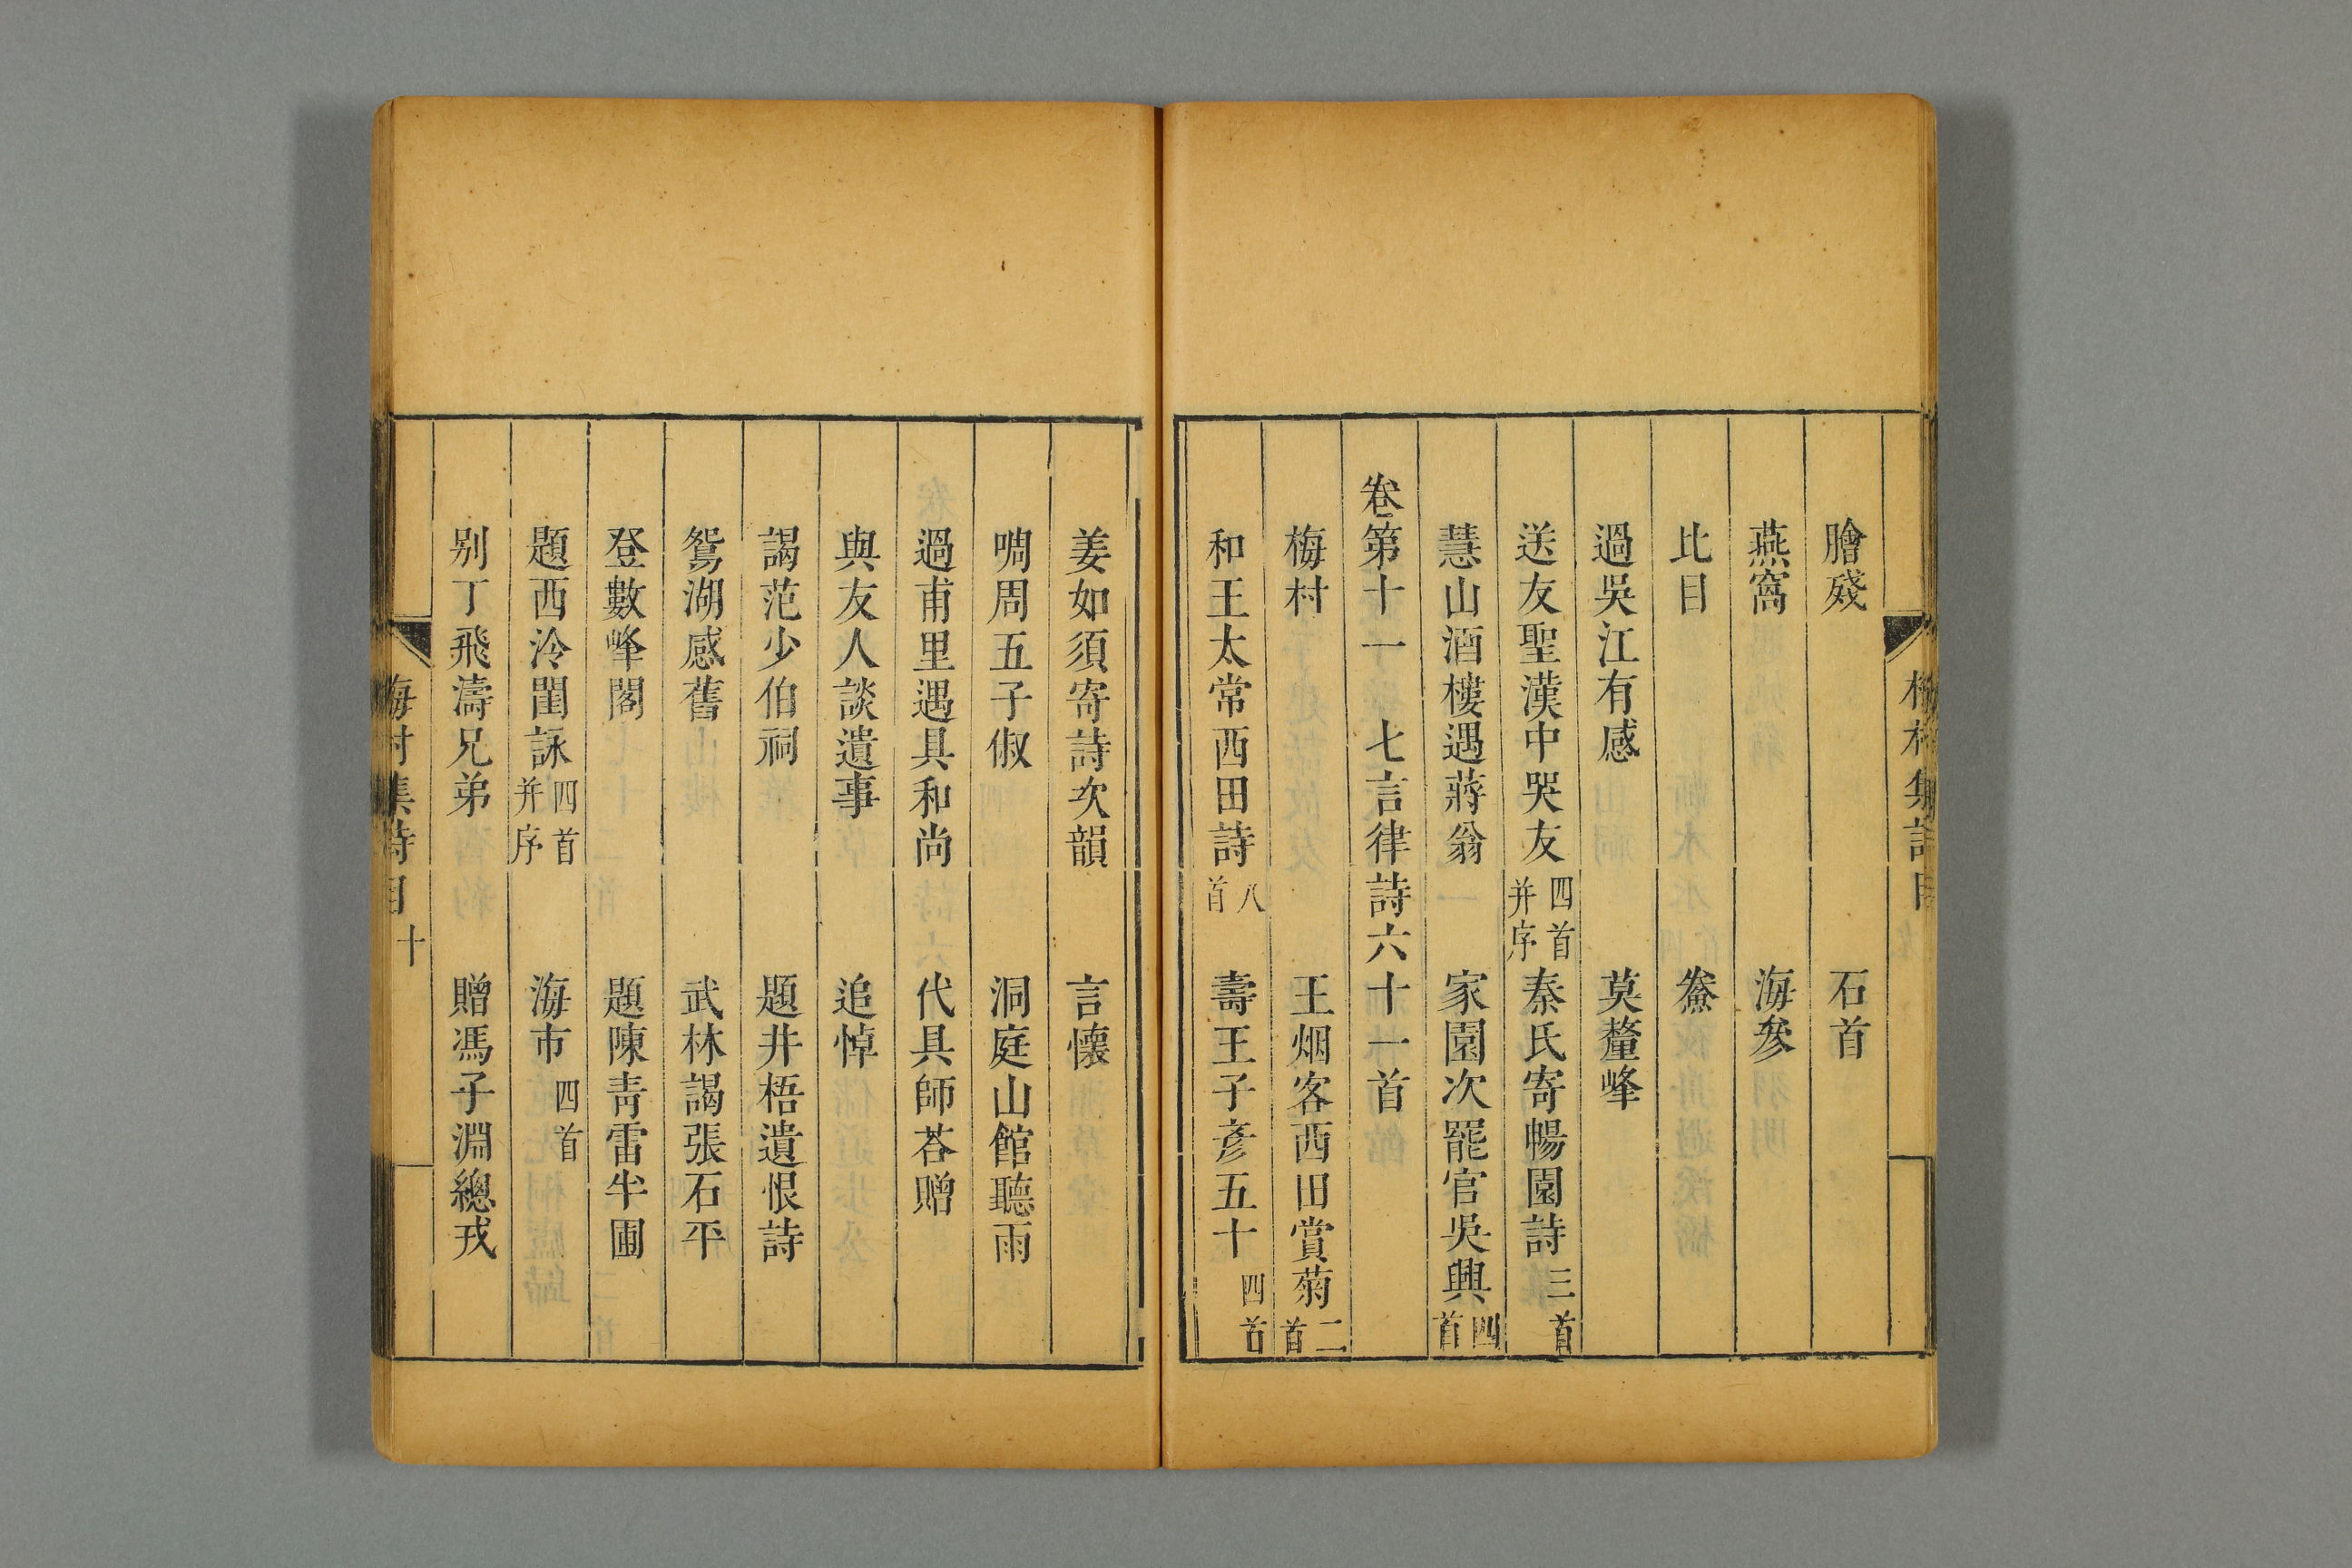 膾殘　石首
燕窩　海參
比目　鮝
過吳江有感　莫釐峰
送友聖漢中哭友四首并序　秦氏寄暢園詩三首
慧山酒樓遇蔣翁　家園次罷官吳興四首
卷第十一　七言律詩六十一首
梅村　王烟客西田賞菊二首
和王太常西田詩八首　壽王子彥五十四首
姜如須寄詩次韻　言懷
嘲周五子俶　洞庭山館聽雨
過甫里遇具和尚　代具師荅贈
與友人談遺事　追悼
謁范少伯祠　題井梧遺恨詩
鴛湖感舊　武林謁張石平
登數峰閣　題陳青雷半圃
題西泠閨詠四首并序　海市四首
别丁飛濤兄弟　贈馮子淵總戎
梅村集詩目　十